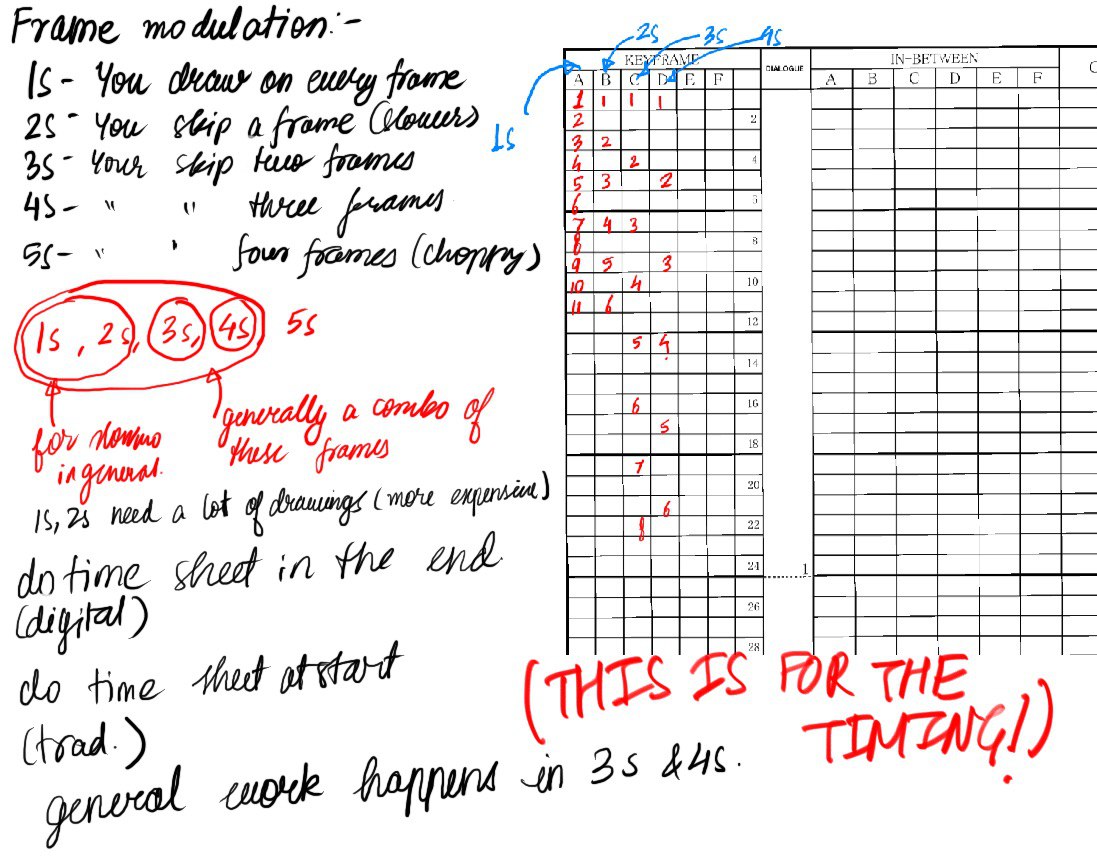 Frame modulation:-
1s - You draw on every frame
2s - You skip a frame (slower)
3s - Your skip two frames
4s - " " three frames
5s - " " four frames (choppy)
1s, 2s, 3s, 4s 5s
for slowmo
in general.
generally a combo of
these frames
1s, 2s need a lot of drawings (more expensive)
do time sheet in the end.
(digital)
do time sheet at start
(trad.)
general work happens in 3s & 4s.
1s 2s 3s 4s
KEYFRAME DIALOGUE IN-BETWEEN C
A B C D E F A B C D E F
1 1 1 1
2 2
3 2
4 2 4
5 3 2
6 6
7 4 3
8 8
9 5 3
10 4 10
11 6
12
5 4
14
6 16
5
18
7
20
6
8 22
24 1
26
28
(THIS IS FOR THE
TIMING!)